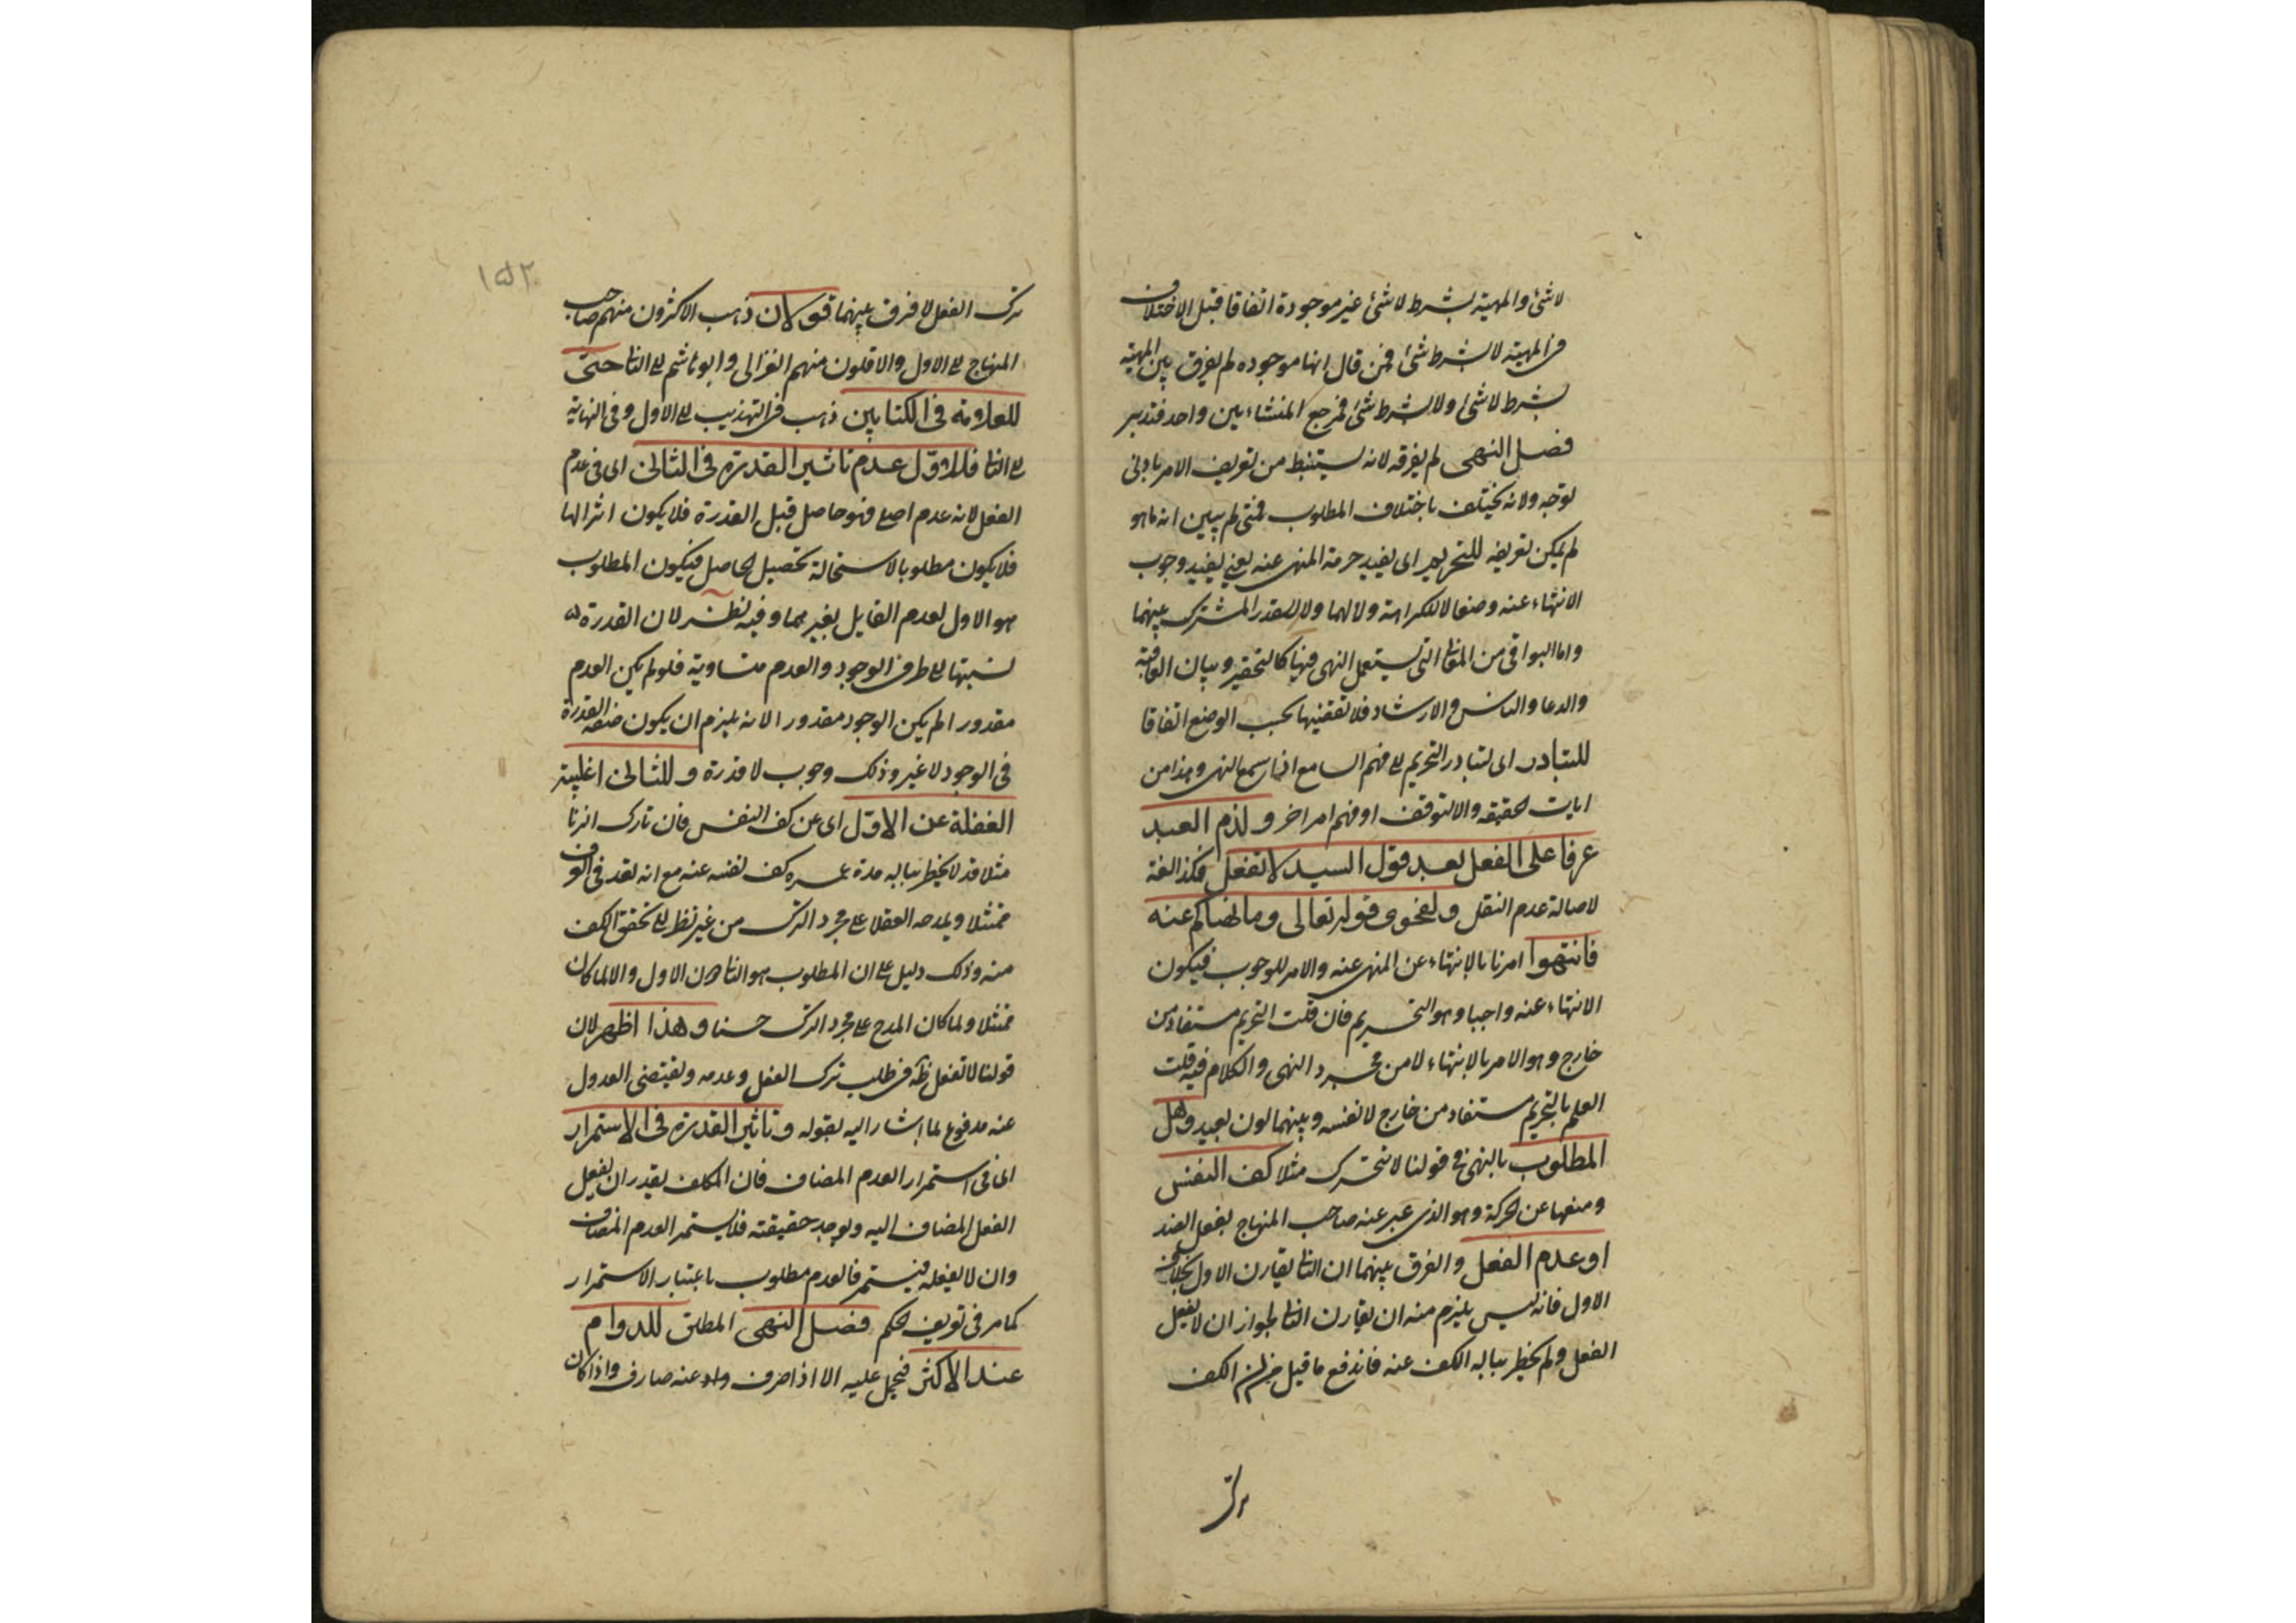 لا شئ والمهية بشرط لا شئ غير موجودة اتفاقا قبل الاختلاف
فى المهية لا بشرط شئ فمن قال انها موجوده لم يفرق بين المهية
بشرط لا شئ ولا بشرط شئ فمرجع المنشاءين واحد فتدبر
فصل النهى لم يعرفه لانه يستنبط من تعريف الامر بادنى
توجه ولانه يختلف باختلاف المطلوب فمتى لم يبين انه ما هو
لم يمكن تعريفه للتحريم اى يفيد حرمة المنهى عنه يعنى يفيد وجوب
الانتهاء عنه وضعا لا للكراهة ولا لهما ولا للقدر المشترك بينهما
واما البواقى من المعانى التى يستعمل النهى فيها كالتحقير وبيان العاقبة
والدعا والياس والارشاد فلا تقتضيها بحسب الوضع اتفاقا
للتبادر اى لتبادر التحريم الى فهم السامع اذا سمع النهى وهذا من
ايات الحقيقه والا لتوقف او فهم امر اخر ولذم العبد
عرفا على الفعل بعد قول السيد لا تفعل فكذا لغة
لاصالة عدم النقل ولفحوى قوله تعالى وما نهاكم عنه
فانتهوا امرنا بالانتهاء عن المنهى عنه والامر للوجوب فيكون
الانتهاء عنه واجبا وهو التحريم فان قلت التحريم مستفاد من
خارج وهو الامر بالانتهاء لا من مجرد النهى والكلام فيه قلت
العلم بالتحريم مستفاد من خارج لا نفسه وبينهما لون بعيد وهل
المطلوب بالنهى فى قولنا لا تتحرك مثلا كف النفس
ومنعها عن الحركة وهو الذى عبر عنه صاحب المنهاج بفعل الضد
او عدم الفعل والفرق بينهما ان الثانى يقارن الاول بخلاف
الاول فانه ليس يلزم منه ان يقارن الثانى لجواز ان لا يفعل
الفعل ولم يخطر بباله الكف عنه فاندفع ما قيل من ان الكف
ترك
١٥٢
ترك الفعل لا فرق بينهما قولان ذهب الاكثرون منهم صاحب
المنهاج الى الاول والاقلون منهم الغزالى وابو هاشم الى الثانى حتى
للعلامة فى الكتابين ذهب فى التهذيب الى الاول وفى النهاية
الى الثانى فللاول عدم تاثير القدرة فى الثانى اى فى عدم
الفعل لانه عدم اصلى فهو حاصل قبل القدرة فلا يكون اثرا لها
فلا يكون مطلوبا لاستحالة تحصيل الحاصل فيكون المطلوب
هو الاول لعدم القايل بغيرهما وفيه نظر لان القدرة
نسبتها الى طرفى الوجود والعدم متساوية فلو لم يكن العدم
مقدورا لم يكن الوجود مقدورا لانه يلزم ان يكون صفة القدرة
فى الوجود لا غير وذلك وجوب لا قدرة وللثانى اغلبية
الغفلة عن الاول اى عن كف النفس فان تارك الزنا
مثلا قد لا يخطر بباله مدة عمره كف نفسه عنه مع انه يعد فى العرف
ممتثلا ويمدحه العقلا على مجرد الترك من غير نظر الى تحقق الكف
منه وذلك دليل على ان المطلوب هو الثانى دون الاول والا لما كان
ممتثلا ولما كان المدح على مجرد الترك حسنا وهذا اظهر لان
قولنا لا تفعل ظه فى طلب ترك الفعل وعدمه ويقتضى العدول
عنه مدفوع لما اشار اليه بقوله وتاثير القدرة فى الاستمرار
اى فى استمرار العدم المضاف فان المكلف يقدر ان يفعل
الفعل المضاف اليه ويوجد حقيقته فلا يستمر العدم المضاف
وان لا يفعله فيستمر فالعدم مطلوب باعتبار الاستمرار
كما مر فى تعريف الحكم فصل النهى المطلق للدوام
عند الاكثر فيحمل عليه الا اذا صرف عنه صارف واذا كان